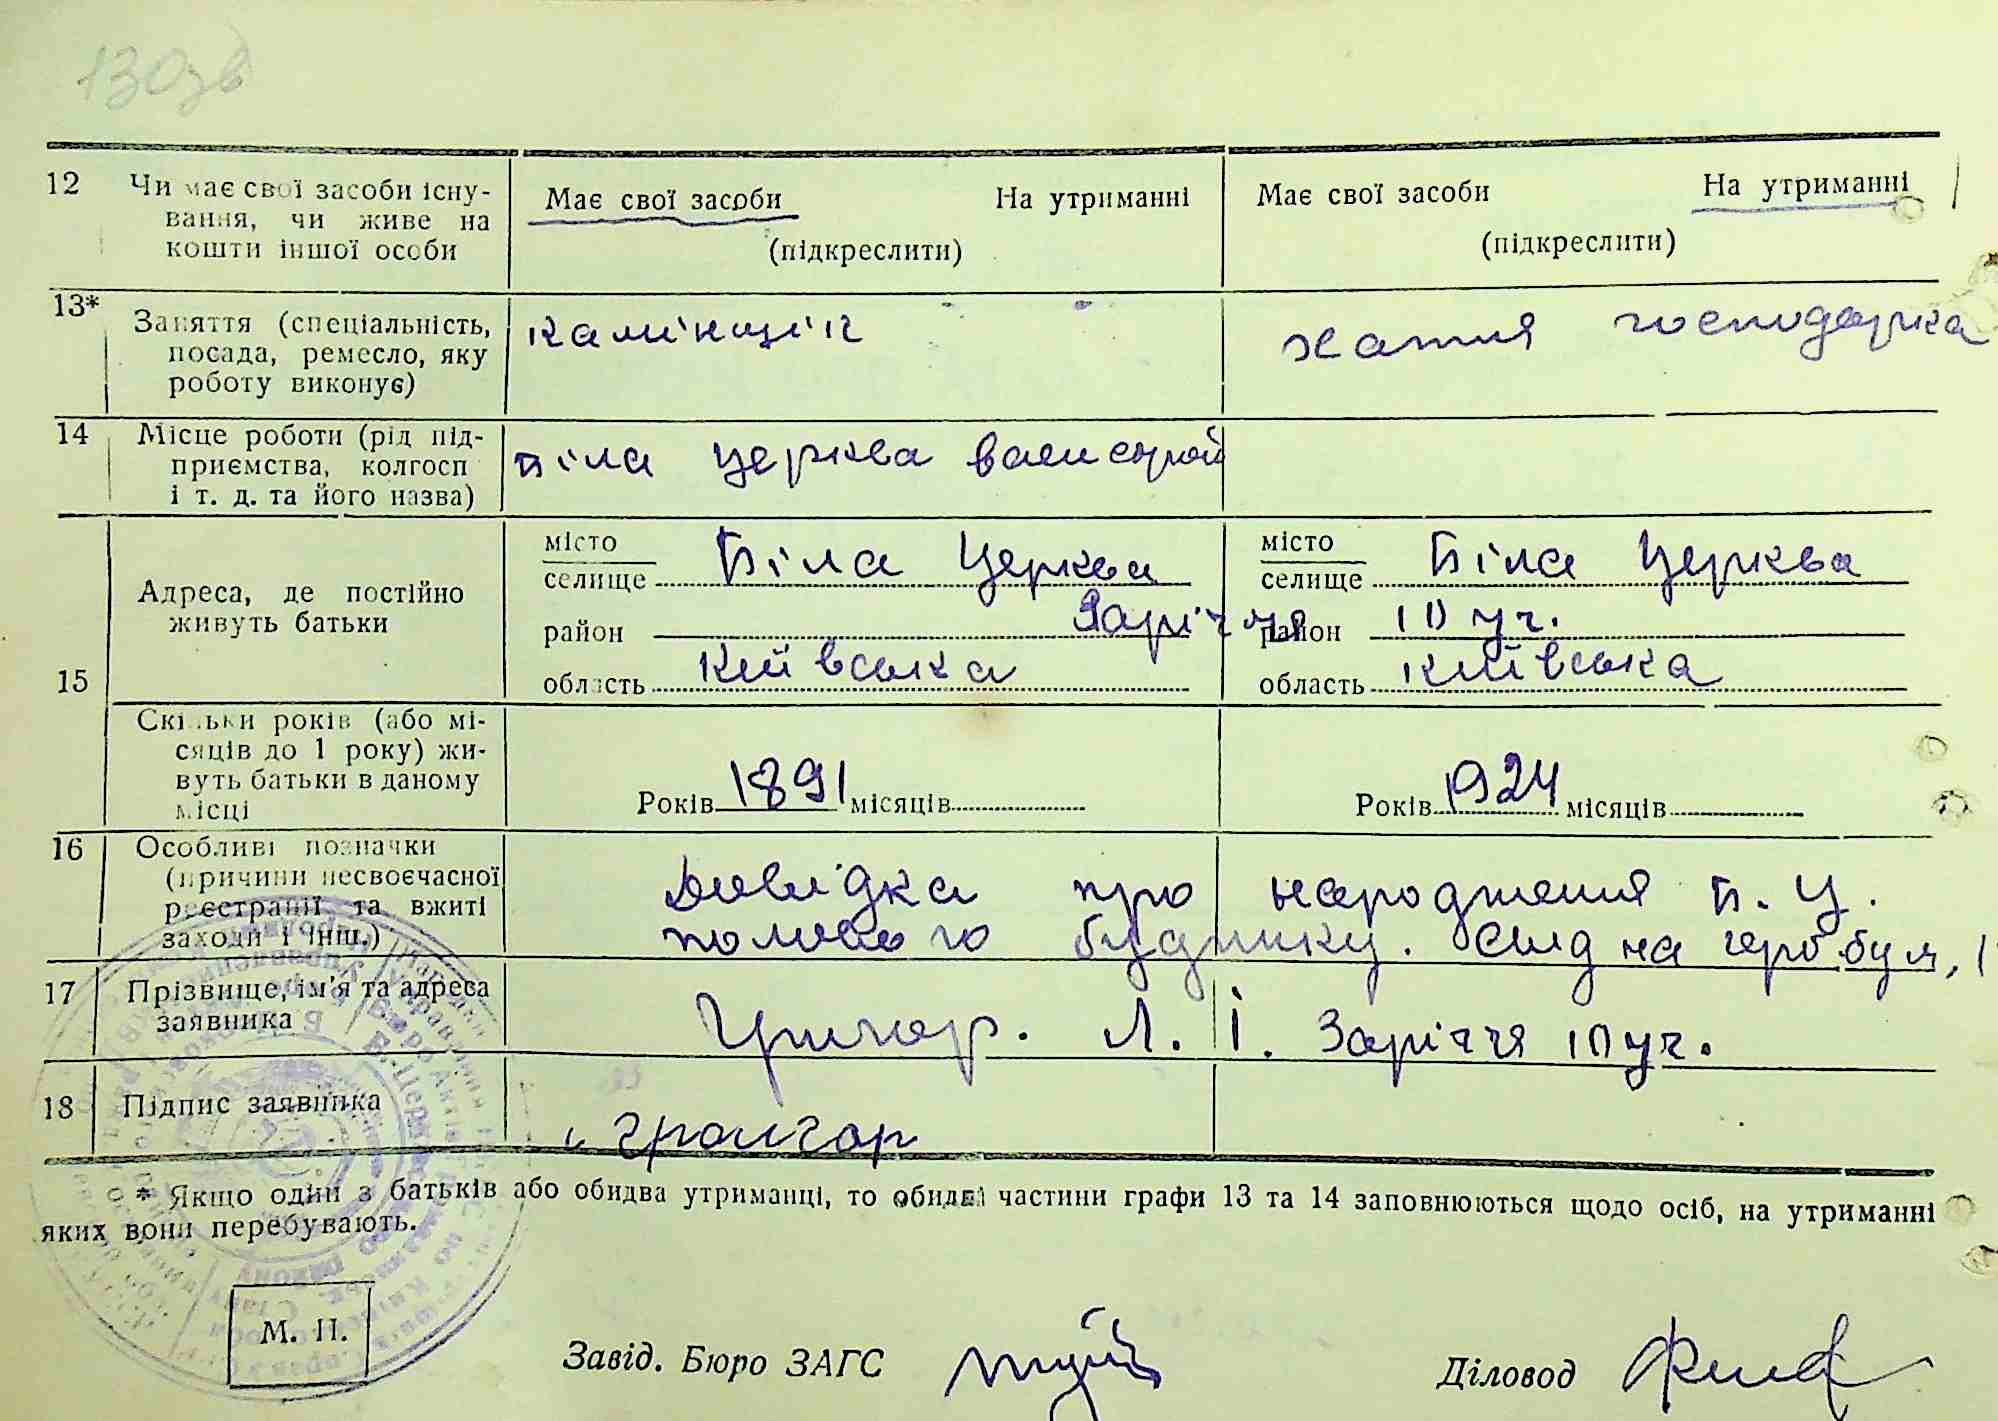 130зв
12 Чи має свої засоби існу- Має свої засоби На утриманні Має свої засоби На утриманні
вання, чи живе на
кошти іншої особи (підкреслити) (підкреслити)
13* Заняття (спеціальність, камінщік хатня господарка
посада, ремесло, яку
роботу виконує)
14 Місце роботи (рід під-
приємства, колгосп Біла церква
і т. д. та його назва)
місто Біла Церква місто Біла Церква
селище селище
Адреса, де постійно
живуть батьки район Заріччя район 10 уч.
15 область київська область київська
Скільки років (або мі-
сяців до 1 року) жи-
вуть батьки в даному Років 1891 місяців Років 1924 місяців
місці
16 Особливі позначки
(причини несвоєчасної Довідка про народження Б. Ц.
реєстрації та вжиті
заходи і інш.) полового будинку.
17 Прізвище, ім'я та адреса
заявника Григор. Л. І. Заріччя 10 уч.
18 Підпис заявника
* Якщо один з батьків або обидва утриманці, то обидві частини графи 13 та 14 заповнюються щодо осіб, на утриманні
яких вони перебувають.
М. П.
Завід. Бюро ЗАГС Діловод